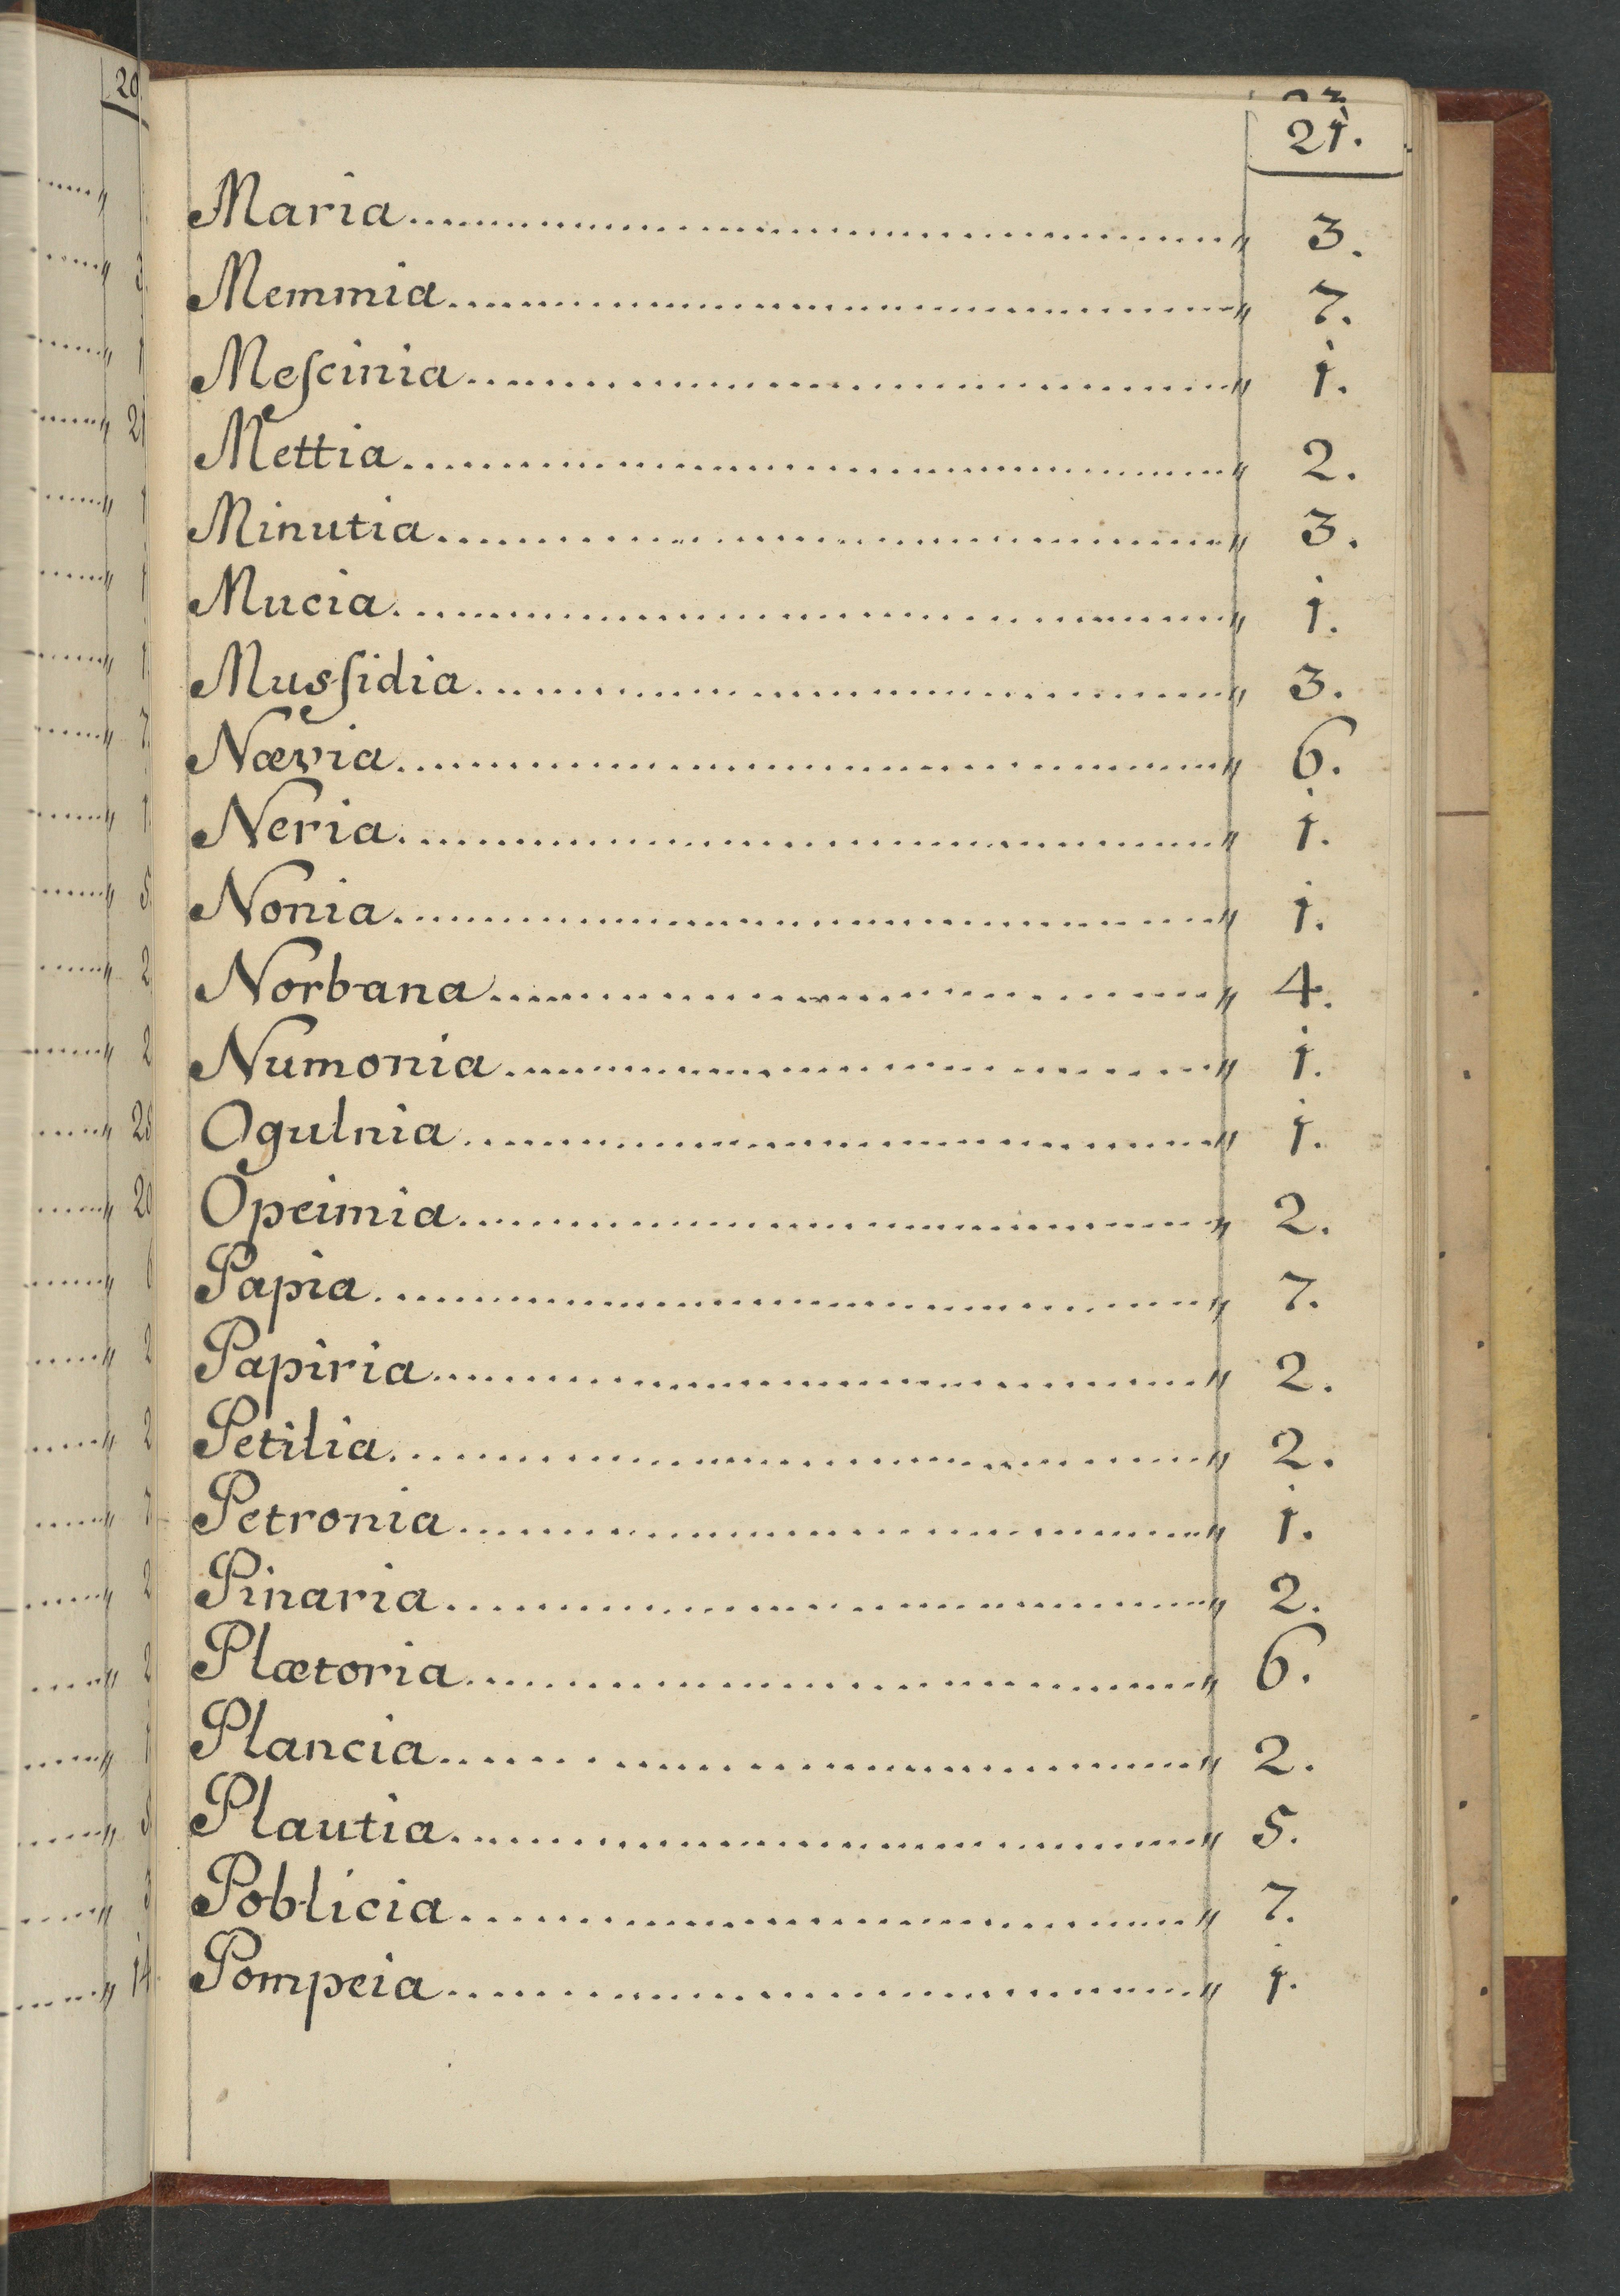 21.
Maria........................................" 3.
Memmia........................................" 7.
Meſcinia........................................" 1.
Mettia........................................" 2.
Minutia........................................" 3.
Mucia........................................" 1.
Musſidia........................................" 3.
Nævia........................................" 6.
Neria........................................" 1.
Nonia........................................" 1.
Norbana........................................" 4.
Numonia........................................" 1.
Ogulnia........................................" 1.
Opeimia........................................" 2.
Papia........................................" 7.
Papiria........................................" 2.
Petilia........................................" 2.
Petronia........................................" 1.
Pinaria........................................" 2.
Plætoria........................................" 6.
Plancia........................................" 2.
Plautia........................................" 5.
Poblicia........................................" 7.
Pompeia........................................" 1.